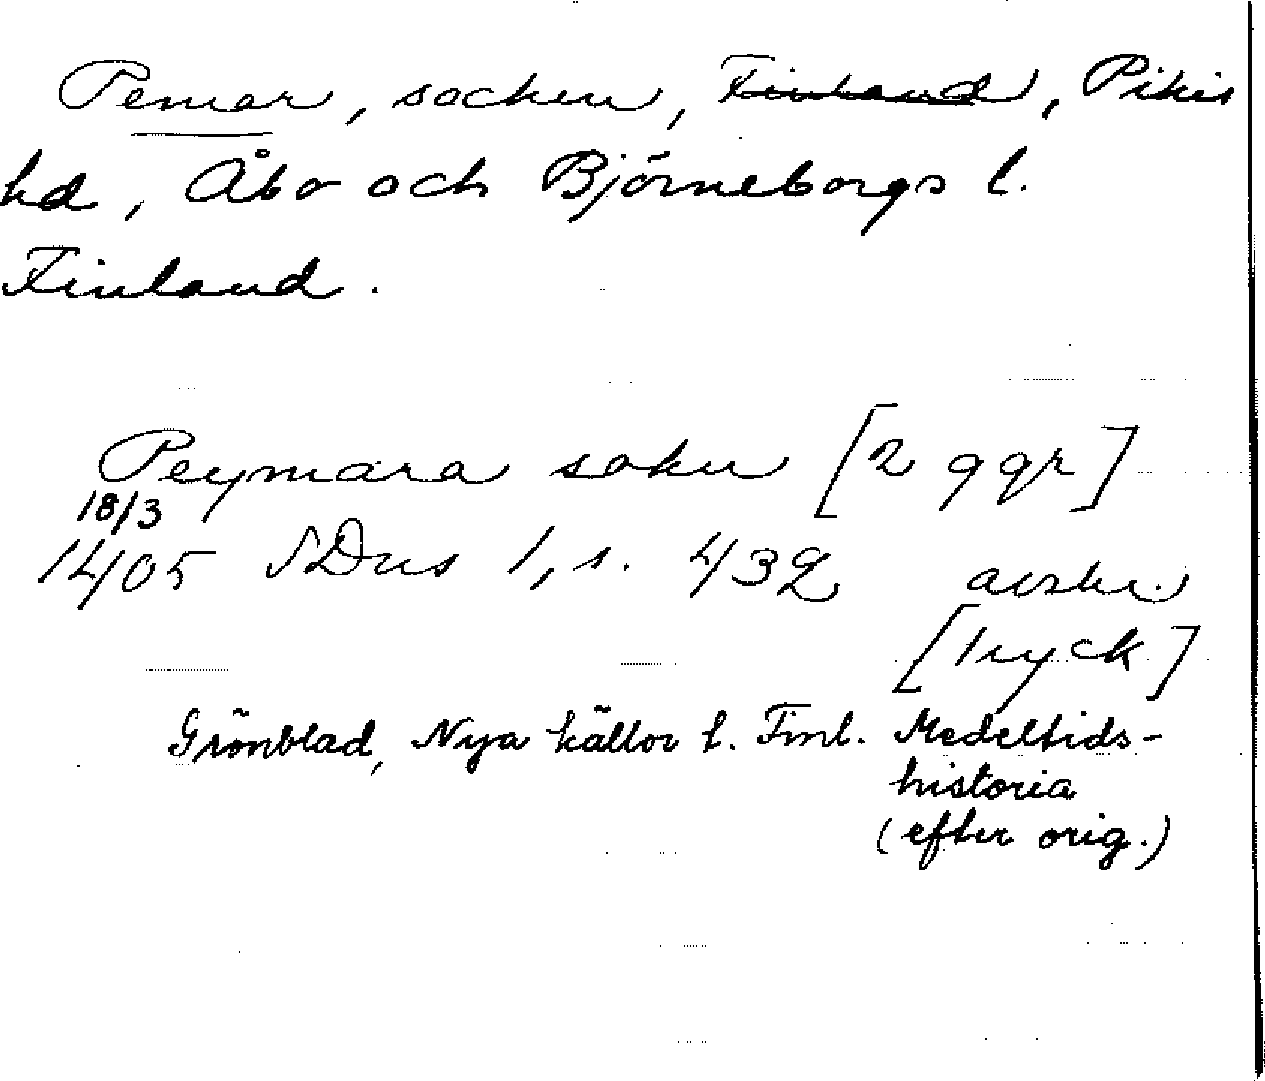 Pemar, socken, Finland, Pikis
hd, Åbo och Björneborgs l.
Finland.
Peymara sokn [2 ggr]
18/3
1405 SDns 1, s. 432 avskr.
[tryck]
Grönblad, Nya källor t. Finl. Medeltids-
historia
(efter orig.)